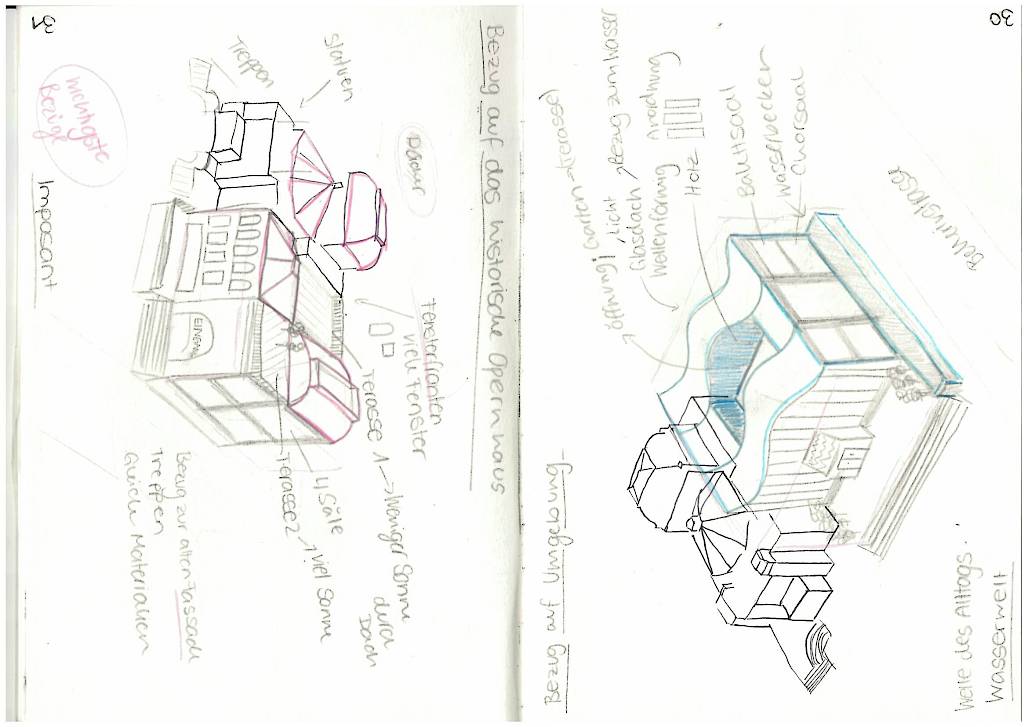 30
Bezug auf Umgebung
Öffnung! Garten → terasse!
Licht
Glasdach → Bezug zum Wasser
Wellenförmig Anordnung
Holz
Ballettsaal
Wasserbecken
Chorsaal
Welle des Alltags.
Wasserwelt
31
Bezug auf das historische Opernhaus
Statuen
Treppen
Dächer
wichtigste
Bezüge
Imposant
EINGANG
Fensterfronten
viele Fenster
Terasse 1 → Weniger Sonne
durch
Dach
4 Säle
Terasse 2 → viel Sonne
Bezug zur alten Fassade
Treppen
Gleiche Materialien